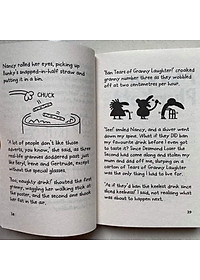 Nancy rolled her eyes, picking up
Bunky's snapped-in-half straw and
putting it in a bin.
CHUCK
'A lot of people don't like those
adverts, you know,' she said, as three
real-life grannies doddered past just
like Beryl, Irene and Gertrude, except
without the special glasses.
'Too very, ducky drink!' shouted the first
granny, waggling her walking stick at
the poster, and the second one shook
her fist in the air.
38
'Ban Tears of Granny Laughter!' croaked
granny number three as they wobbled off
at two centimetres per hour.
'See!' smiled Nancy, and a shiver went
down my spine. 'What if they DID ban
my favourite drink before I even got
to taste it? Since Desmond Loser the
Second had come along and stolen my
mum and dad off me, crying on a
carton of Tears of Granny Laughter was
all I had to live for.
'As if they'd ban the keelest drink since
sliced keelness!' I said, not realising what
was about to happen next.
39